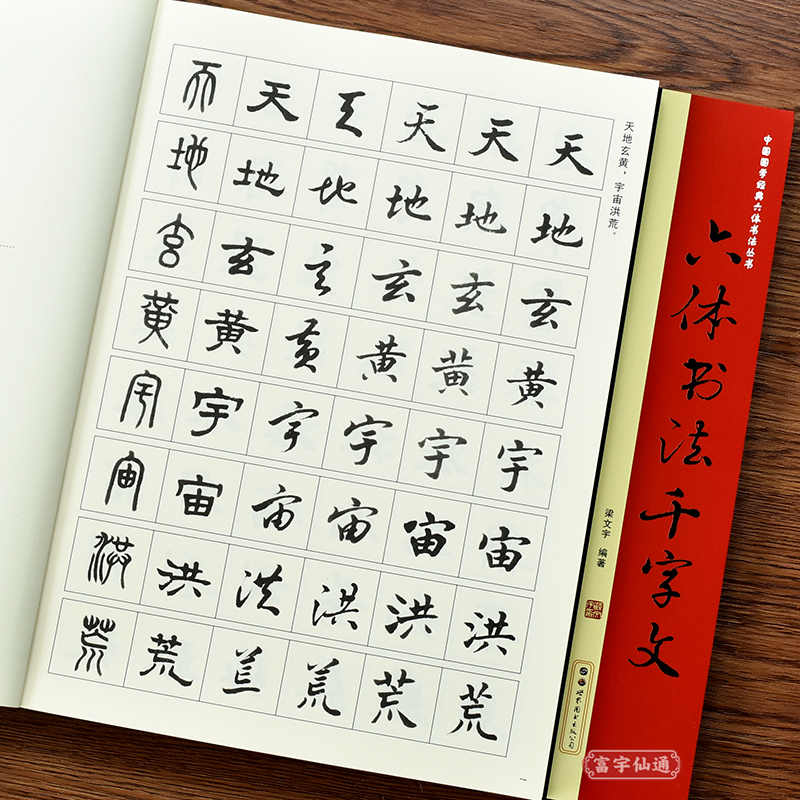 天地玄黄，宇宙洪荒。
天 天 天 天 天 天
地 地 地 地 地 地
玄 玄 玄 玄 玄 玄
黄 黄 黄 黄 黄 黄
宇 宇 宇 宇 宇 宇
宙 宙 宙 宙 宙 宙
洪 洪 洪 洪 洪 洪
荒 荒 荒 荒 荒 荒
中国国学经典六体书法丛书
六体书法千字文
梁文宇 编著
世界图书出版公司
富宇仙通